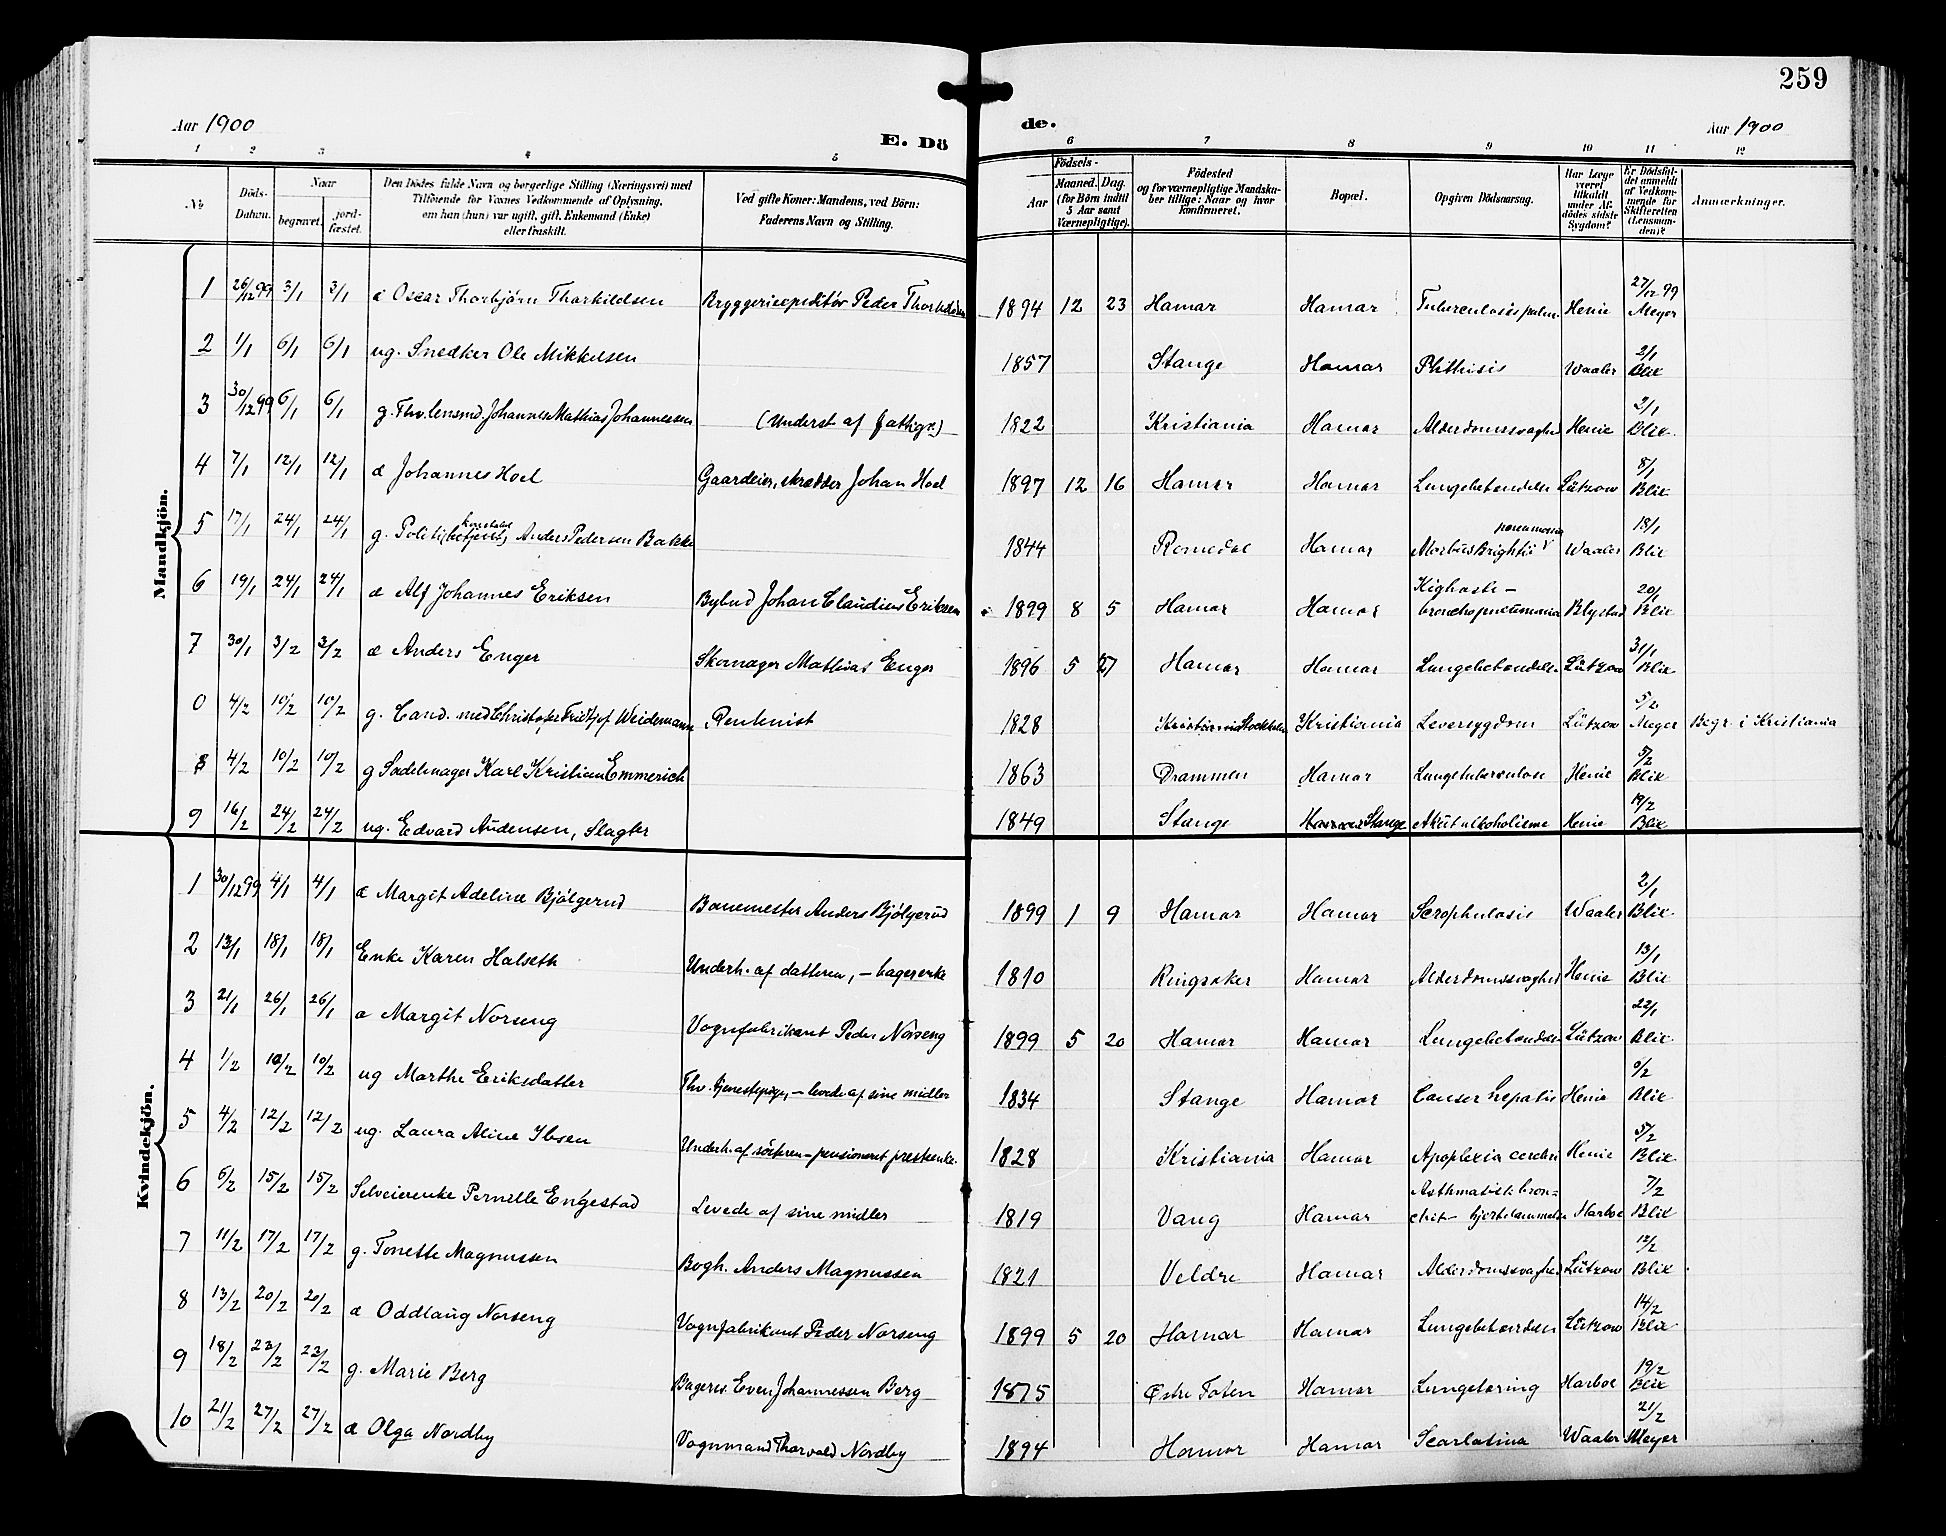 259
Aar 1900
E. Dö
de.
Aar 1900
1 2 3 4 5 6 7 8 9 10 11 12
No
Döds-Datum.
Naar
begravet. jordfæstet.
Den Dödes fulde Navn og borgerlige Stilling (Næringsvei) med Tilföiende for Voxnes Vedkommende af Oplysning, om han (hun) var ugift, gift, Enkemand (Enke) eller fraskilt.
Ved gifte Koner: Mandens, ved Börn: Faderens Navn og Stilling.
Födsels-
Aar Maaned. Dag.
(for Börn indtil 5 Aar samt Værnepligtige).
Födested og for værnepligtige Mandskaber tillige: Naar og hvor konfirmeret.
Bopæl.
Opgiven Dödsaarsag.
Har Læge været tilkaldt under Afdödes sidste Sygdom?
Er Dödsfaldet anmeldt af Vedkommende for Skifteretten (Lensmanden)?
Anmærkninger.
Mandkjön.
1 26/12 99 3/1 3/1 æ Oscar Thorbjörn Thorkildsen Bryggeriexpeditör Peder 1894 12 23 Hamar Hamar Tuberculosis pulm. Henie 27/12 99 Meyer
2 1/1 6/1 6/1 ug. Snedker Ole Mikkelsen 1857 Stange Hamar Phthisis Waaler 2/1 Blix
3 30/12 99 6/1 6/1 g. Fhv. lensmd. Johannes Mathias Johannessen (Underst af fattigv.) 1822 Kristiania Hamar Alderdomssvaghed Henie 2/1 Blix.
4 7/1 12/1 12/1 æ Johannes Hoel Gaardeier, skrædder Johan Hoel 1897 12 16 Hamar Hamar Lungebetændelse Lützow 8/1 Blix
5 17/1 24/1 24/1 g. Politi(betjent) konstabel Anders Pedersen Bakke 1844 Romedal Hamar Morbus Brightii pneumonia Waaler 18/1 Blix
6 19/1 24/1 24/1 æ Alf Johannes Eriksen Bybud Johan Claudius Eriksen 1899 8 5 Hamar Hamar Kighoste – bronchopneumonia Blystad 20/1 Blix
7 30/1 3/2 3/2 æ Anders Enger Skomager Mathias Enger 1896 5 27 Hamar Hamar Lungebetændelse Lützow 31/1 Blix
0 4/2 10/2 10/2 g. Cand. med Christofer Fridtjof Weidemann Rentenist 1828 Kristiania Stockholm Kristiania Leversygdom Lützow 5/2 Meyer Begr. i Kristiania
8 4/2 10/2 10/2 g Sadelmager Karl Kristian Emmerich 1863 Drammen Hamar Lungetuberculose Henie 5/2 Blix
9 16/2 24/2 24/2 ug. Edvard Audensen, Slagter 1849 Stange Hamar Stange Akut alkoholisme Henie 19/2 Blix
Kvindekjön.
1 30/12 99 4/1 4/1 æ Margit Adeline Bjölgerud Banemester Anders Bjölgerud 1899 1 9 Hamar Hamar Scrophulosis Waaler 2/1 Blix.
2 13/1 18/1 18/1 Enke Karen Halseth Underh. af datteren, – bagerenke 1810 Ringsaker Hamar Alderdomssvaghed Henie 13/1 Blix
3 21/1 26/1 26/1 æ Margit Norseng Vognfabrikant Peder Norseng 1899 5 20 Hamar Hamar Lungebetændelse Lützow 22/1 Blix.
4 1/2 10/2 10/2 ug Marthe Eriksdatter Fhv. tjenestepige, – levede af sine midler 1834 Stange Hamar Cancer hepatis Henie Blix
5 4/2 12/2 12/2 ug. Laura Aline Ibsen Underh. af sösteren – pensioneret presteenke. 1828 Kristiania Hamar Apoplexia cerebri Henie 5/2 Blix
6 6/2 15/2 15/2 Selveierenke Pernille Engestad Levede af sine midler 1819 Vang Hamar Asthmatisk bronchit – hjertelammelse Harboe 7/2 Blix
7 11/2 17/2 17/2 g. Tonette Magnussen Bogh. Anders Magnussen 1821 Veldre Hamar Alderdomssvaghed Lützow 12/2 Blix
8 13/2 20/2 20/2 æ Oddlaug Norseng Vognfabrikant Peder Norseng 1899 5 20 Hamar Hamar Lungebetændelse Lützow 14/2 Blix
9 18/2 23/2 23/2 g. Marie Berg Bagersv. Even Johannessen Berg 1875 Østre Toten Hamar Lungetæring Harboe 19/2 Blix
10 21/2 27/2 27/2 æ Olga Nordby Vognmand Thorvald Nordby 1894 Hamar Hamar Scarlatina Waaler 21/2 Meyer